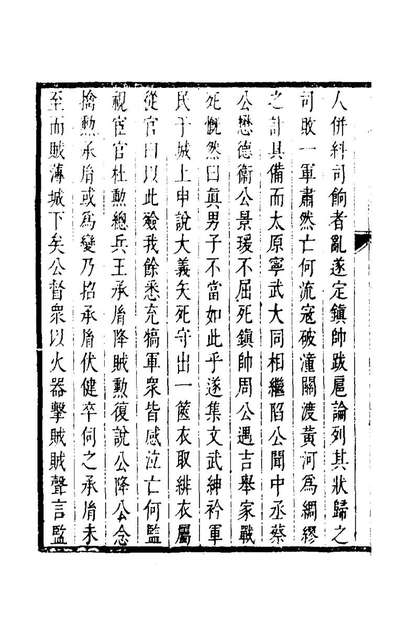 人併科司餉者亂遂定鎮帥跋扈論列其狀歸之
司敗一軍肅然亡何流寇破潼關渡黃河為綢繆
之計具備而太原寧武大同相繼陷公聞中丞蔡
公懋德衛公景瑗不屈死鎮帥周公遇吉舉家戰
死慨然曰眞男子不當如此乎遂集文武紳衿軍
民于城上申說大義矢死守出一篋衣取緋衣屬
從官曰以此殮我餘悉充犒軍衆皆感泣亡何監
視宦官杜勲總兵王承胤降賊勲復說公降公念
擒勲承胤或為變乃招承胤伏健卒伺之承胤未
至而賊薄城下矣公督衆以火器擊賊賊聲言監